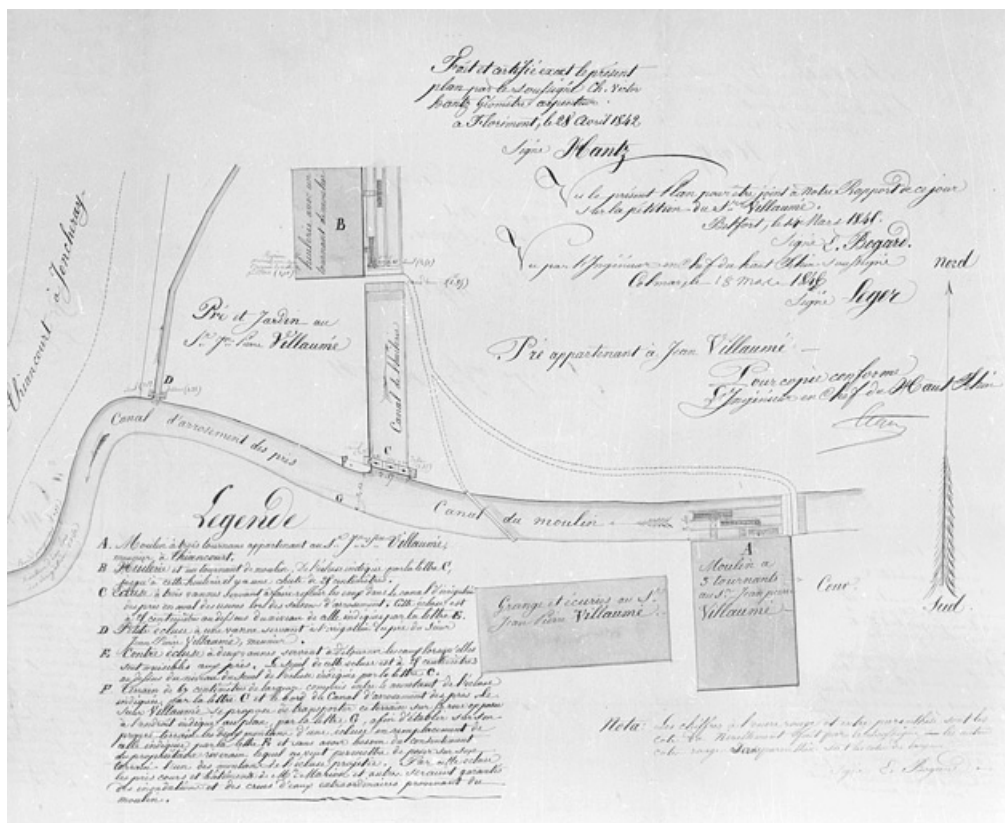 Fait et certifié exact le présent
plan par le soussigné Ch. Victor
Hantz Géomètre arpenteur
à Florimont, le 28 Avril 1842
Signé Hantz
Vu le présent Plan pour être joint à notre Rapport de ce jour
sur la pétition du Sr Villaumé.
Belfort, le Mars 1846.
Signé E. Bogard.
Vu par l'Ingénieur en Chef du haut Rhin soussigné
Colmar, le 18 mai 1846
Signé Leger
Nord
Pré appartenant à Jean Villaumé
Pour copie conforme
L'Ingénieur en Chef du Haut Rhin
Thiancourt à Joncheray
huilerie avec un
tournant de moulin
B
Pré et Jardin au
Sr Jn Pierre Villaumé
Canal de l'huilerie
D
C
F
G
Canal d'arrosement des prés
Canal du moulin
A
Moulin à
3 tournants
au Sr Jean pierre
Villaumé
Cour
Grange et écuries au Sr
Jean Pierre Villaumé
Sud
Légende
A. Moulin à trois tournans appartenant au Sr Jn Pre Villaumé,
meunier à Thiancourt.
B Huilerie et un tournant de moulin. De l'écluse indiquée par la lettre C,
jusqu'à cette huilerie il y a une chute de centimètres.
C Ecluse à trois vannes servant à faire refluer les eaux dans le canal d'irrigation
des prés en aval des usines lors des saisons d'arrosement. Cette écluse est
centimètres au dessous du niveau de celle indiquée par la lettre E.
D Petite écluse à une vanne servant à l'irrigation du pré du Sieur
Jean Pierre Villaumé, meunier.
E Contre écluse à deux vannes servant à détourner les eaux lorsqu'elles
sont nuisibles aux prés. Le seuil de cette écluse est à centimètres
au dessus du niveau du seuil de l'écluse indiquée par la lettre C.
F Terrain de 67 centimètres de largeur compris entre le montant de l'écluse
indiquée par la lettre C et le bord du Canal d'arrosement des prés. Le
Sieur Villaumé se propose de transporter ce terrain sur la rive opposée
à l'endroit indiqué au plan, par la lettre G, afin d'établir sur son
propre terrain les deux montans d'une écluse en remplacement de
celle indiquée par la lettre E et sans avoir besoin du consentement
du propriétaire riverain lequel avait permis de poser sur son
terrain l'un des montans de l'écluse projetée. Par cette écluse
les prés cours et bâtimens de Mr de Marion et autres seraient garantis
des inondations et des crues d'eaux extraordinaires provenant du
moulin.
Nota: Les chiffres à l'encre rouge et entre parenthèse sont les
cotes du Nivellement
Signé E. Bogard